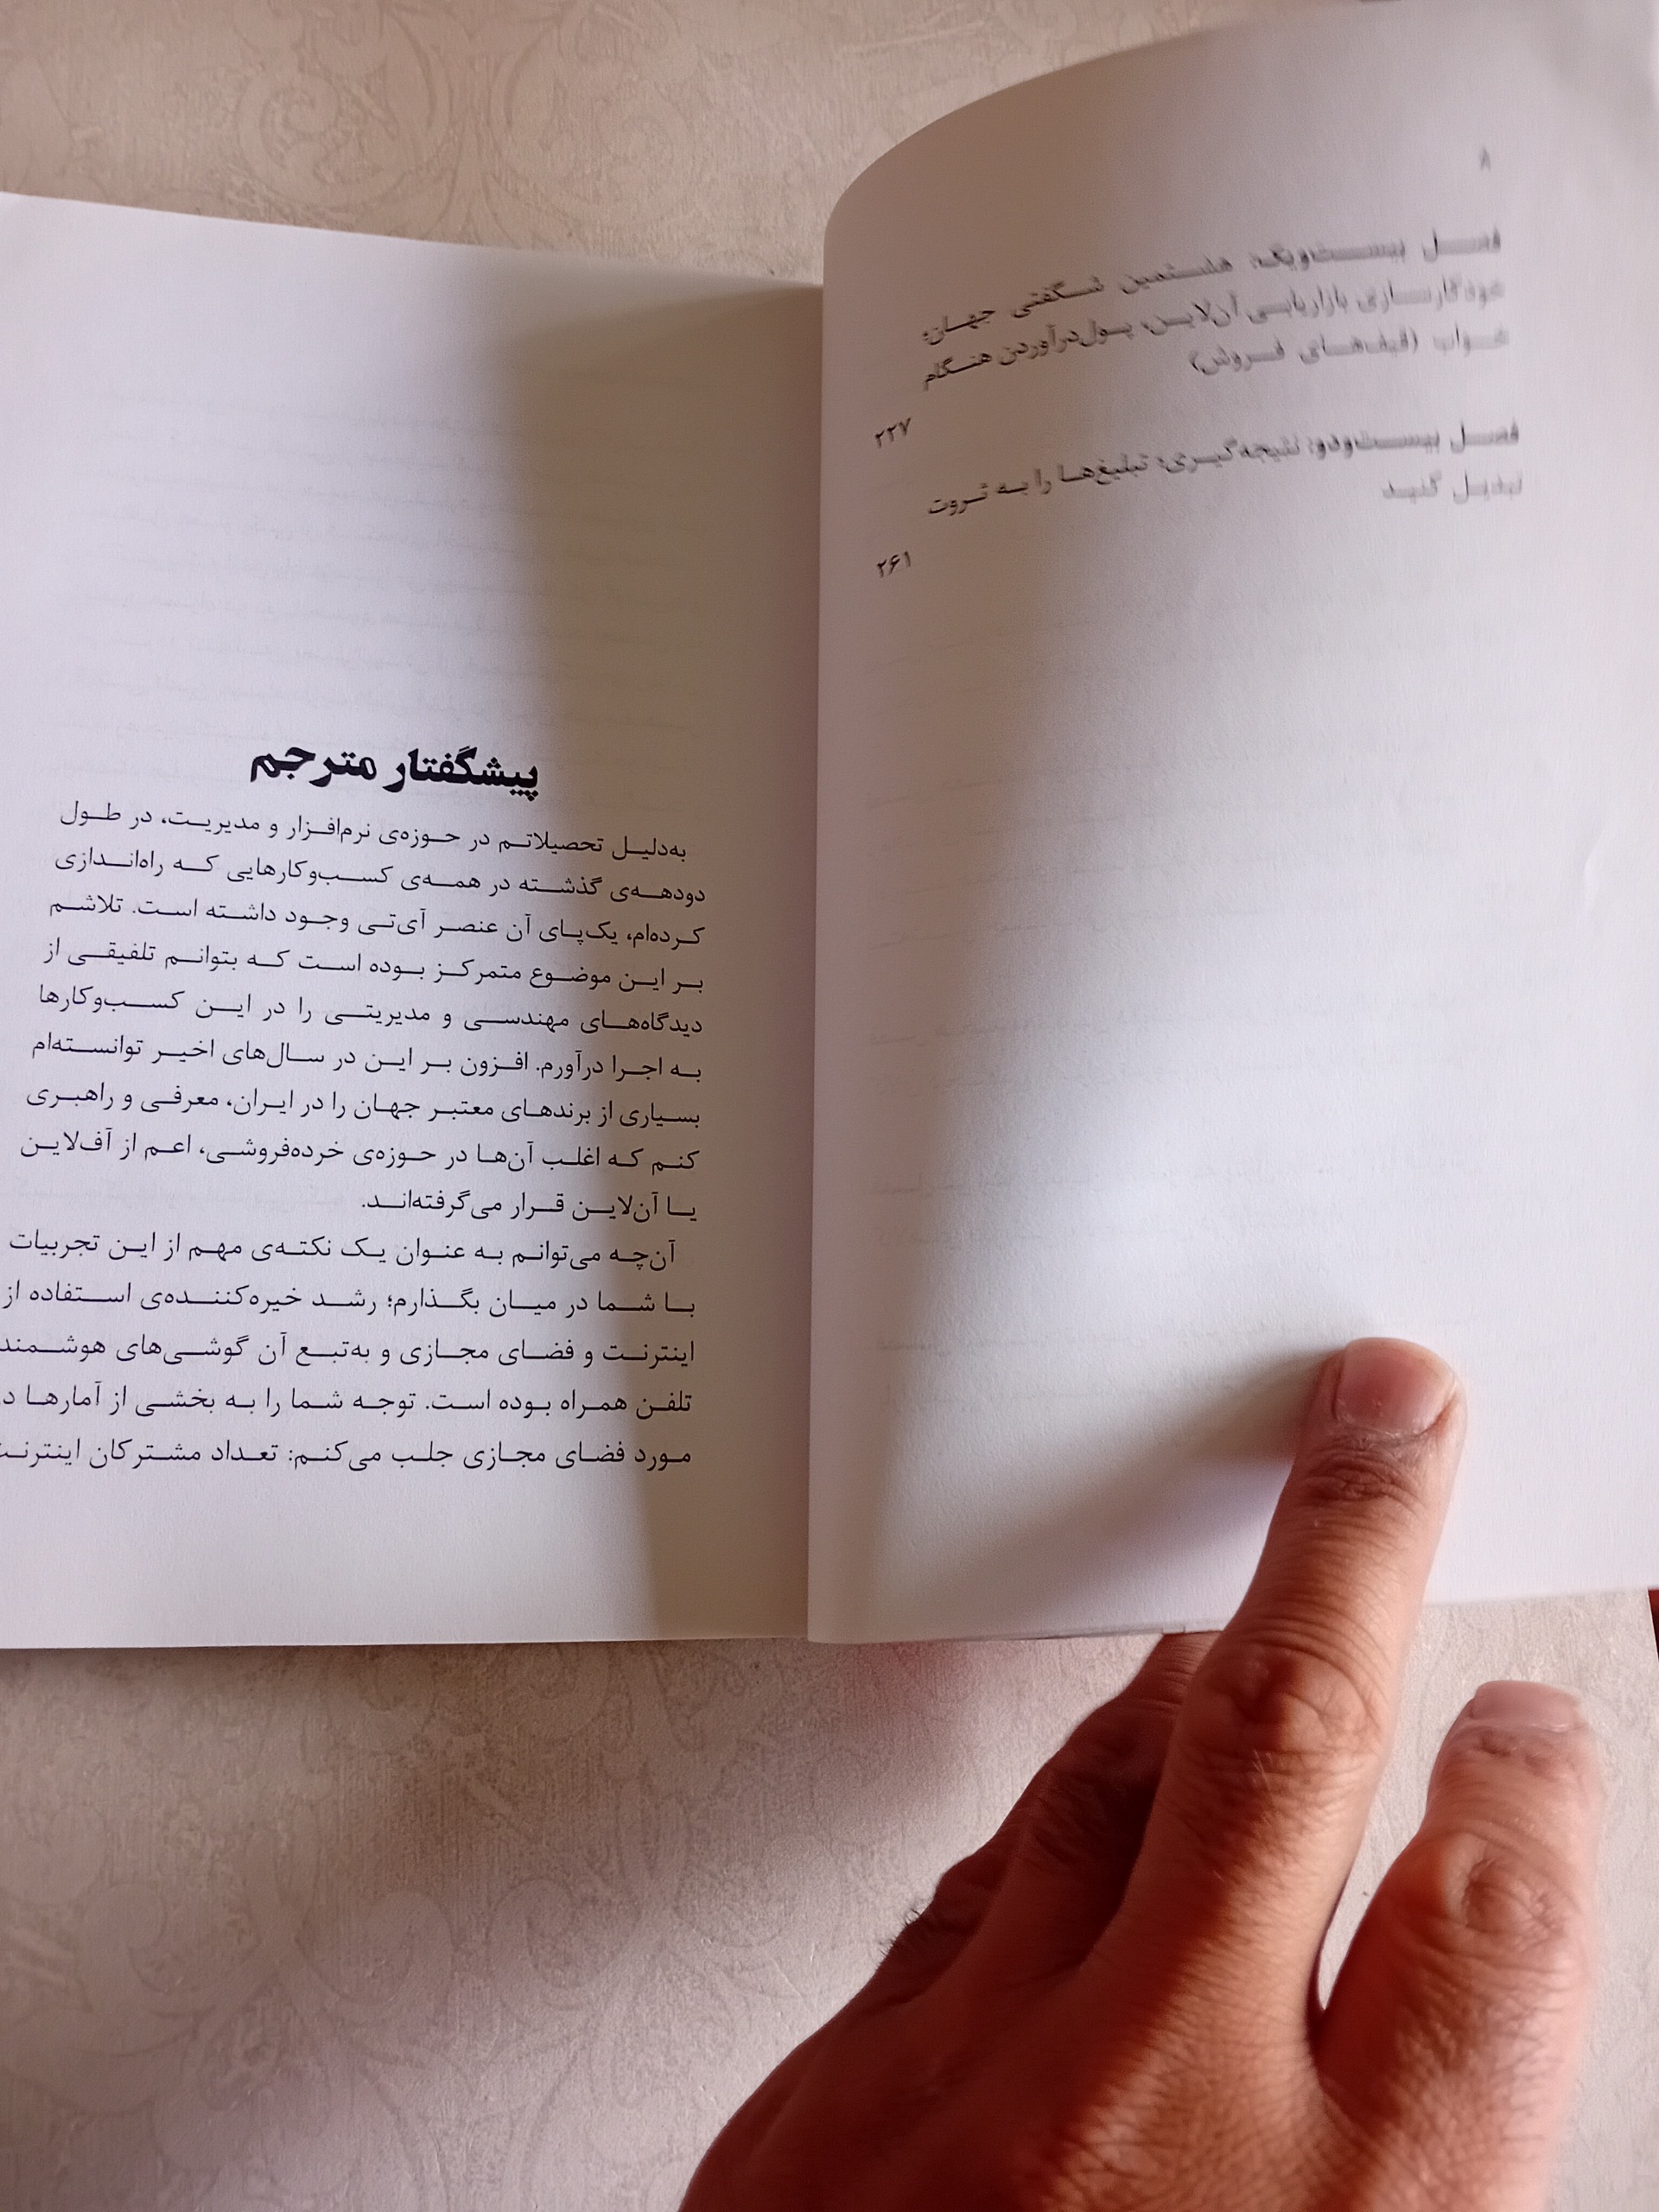 ۸
فصل بیست‌ویک: هشتمین شگفتی جهان؛
خودکارسازی بازاریابی آن‌لاین، پول‌درآوردن هنگام
خواب (قیف‌های فروش)
۲۲۷
فصل بیست‌ودو: نتیجه‌گیری؛ تبلیغ‌ها را به ثروت
تبدیل کنید
۲۶۱
پیشگفتار مترجم
به‌دلیل تحصیلاتم در حوزه‌ی نرم‌افزار و مدیریت، در طول
دودهه‌ی گذشته در همه‌ی کسب‌وکارهایی که راه‌اندازی
کرده‌ام، یک‌پای آن عنصر آی‌تی وجود داشته است. تلاشم
بر این موضوع متمرکز بوده است که بتوانم تلفیقی از
دیدگاه‌های مهندسی و مدیریتی را در این کسب‌وکارها
به اجرا درآورم. افزون بر این در سال‌های اخیر توانسته‌ام
بسیاری از برندهای معتبر جهان را در ایران، معرفی و راهبری
کنم که اغلب آن‌ها در حوزه‌ی خرده‌فروشی، اعم از آف‌لاین
یا آن‌لاین قرار می‌گرفته‌اند.
آن‌چه می‌توانم به عنوان یک نکته‌ی مهم از این تجربیات
با شما در میان بگذارم؛ رشد خیره‌کننده‌ی استفاده از
اینترنت و فضای مجازی و به‌تبع آن گوشی‌های هوشمند
تلفن همراه بوده است. توجه شما را به بخشی از آمارها
مورد فضای مجازی جلب می‌کنم: تعداد مشترکان اینترنت